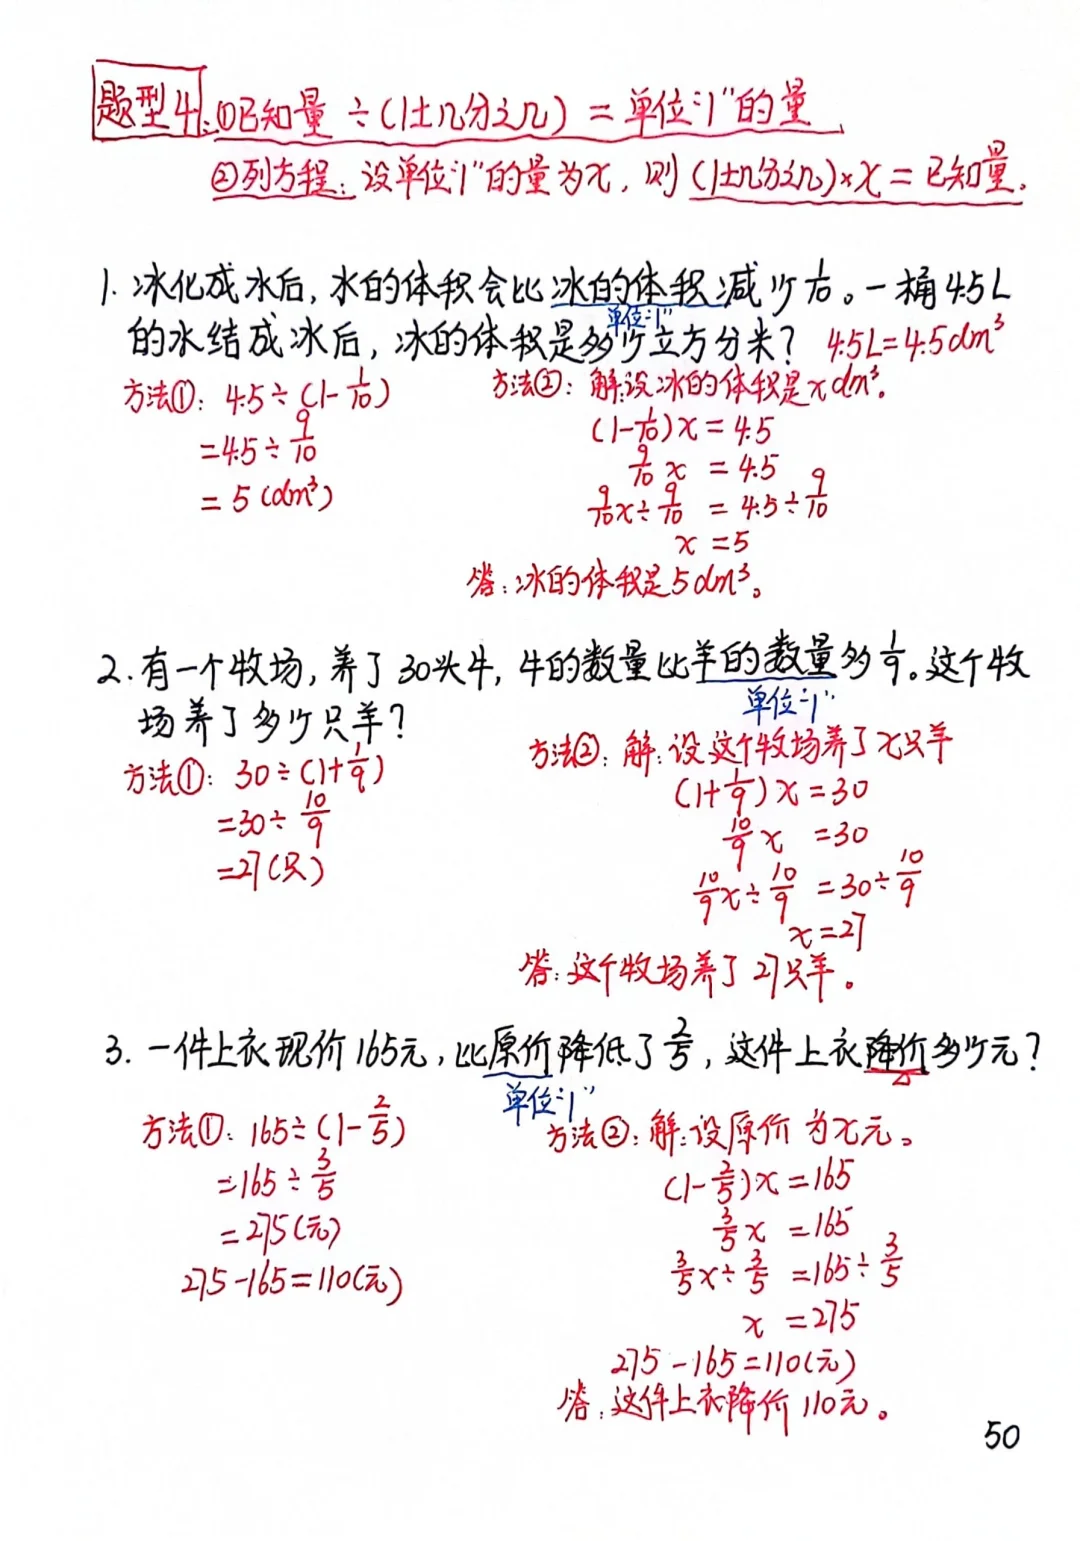 题型4:①已知量÷(1±几分之几)=单位"1"的量
②列方程:设单位"1"的量为x,则(1±几分之几)×x=已知量。
1.冰化成水后,水的体积会比冰的体积减少1/10。一桶4.5L
单位"1"
的水结成冰后,冰的体积是多少立方分米? 4.5L=4.5dm³
方法①:4.5÷(1-1/10)
=4.5÷9/10
=5(dm³)
方法②:解:设冰的体积是xdm³。
(1-1/10)x=4.5
9/10x=4.5
9/10x÷9/10=4.5÷9/10
x=5
答:冰的体积是5dm³。
2.有一个牧场,养了30头牛,牛的数量比羊的数量多1/9。这个牧
单位"1"
场养了多少只羊?
方法①:30÷(1+1/9)
=30÷10/9
=27(只)
方法②:解:设这个牧场养了x只羊
(1+1/9)x=30
10/9x=30
10/9x÷10/9=30÷10/9
x=27
答:这个牧场养了27只羊。
3.一件上衣现价165元,比原价降低了2/5,这件上衣降价多少元?
单位"1"
方法①:165÷(1-2/5)
=165÷3/5
=275(元)
275-165=110(元)
方法②:解:设原价为x元。
(1-2/5)x=165
3/5x=165
3/5x÷3/5=165÷3/5
x=275
275-165=110(元)
答:这件上衣降价110元。
50